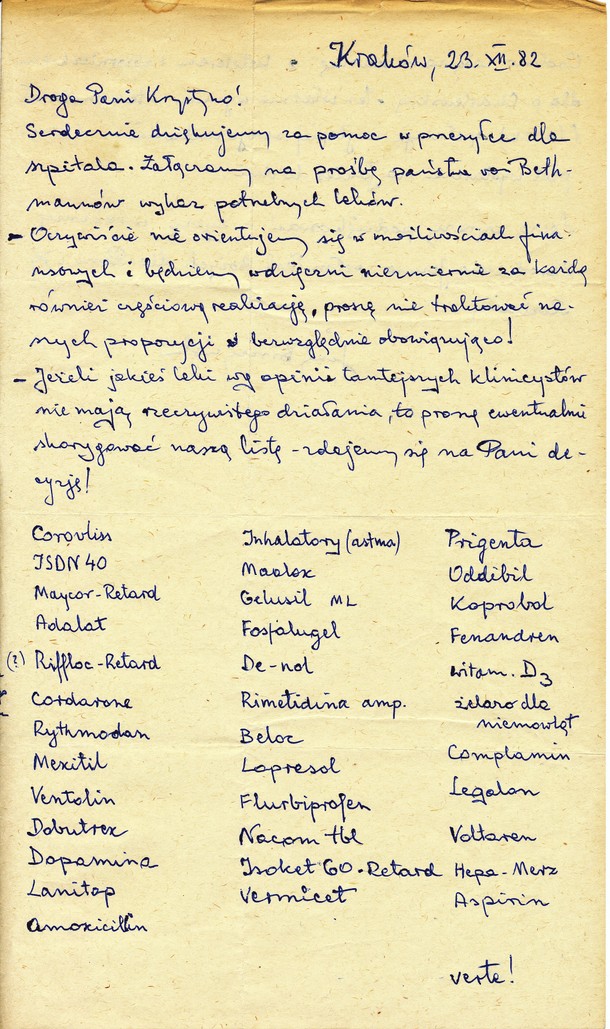 Kraków, 23.XII.82
Droga Pani Krystyno!
Serdecznie dziękujemy za pomoc w przesyłce dla
szpitala. Załączamy na prośbę państwa von Beth-
mannów wykaz potrzebnych leków.
- Oczywiście nie orientujemy się w możliwościach fina-
nsowych i będziemy wdzięczni niezmiernie za każdą
również częściową realizację, proszę nie traktować na-
szych propozycji bezwzględnie obowiązująco!
- Jeżeli jakieś leki wg opinii tamtejszych klinicystów
nie mają rzeczywistego działania, to proszę ewentualnie
skorygować naszą listę - zdajemy się na Pani de-
cyzję!
Corovliss
ISDN 40
Maycor-Retard
Adalat
(?) Riffloc-Retard
Cordarone
Rythmodan
Mexitil
Ventolin
Dobutrex
Dopamina
Lanitop
Amoxicillin
Inhalatory (astma)
Maalox
Gelusil ML
Fosfalugel
De-nol
Rimetidina amp.
Beloc
Lopresol
Flurbiprofen
Nacom tbl
Isoket 60-Retard
Vermicet
Prigenta
Oddibil
Koprobol
Fenandren
witam. D3
żelazo dla
niemowląt
Complamin
Legalon
Voltaren
Hepa-Merz
Aspirin
verte!